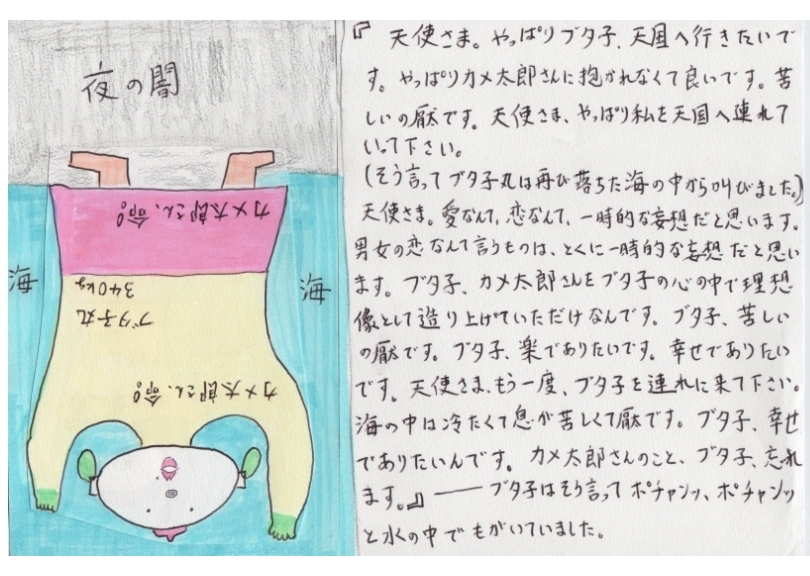 夜の闇
カメ太郎さん、命。
海
海
340kg
ブタ子丸
カメ太郎さん、命。
『 天使さま。やっぱりブタ子、天国へ行きたいで
す。やっぱりカメ太郎さんに抱かれなくて良いです。苦
しいの厭です。天使さま、やっぱり私を天国へ連れて
いって下さい。
(そう言ってブタ子丸は再び落ちた海の中から叫びました。)
天使さま。愛なんて、恋なんて、一時的な妄想だと思います。
男女の恋なんて言うものは、とくに一時的な妄想だと思い
ます。ブタ子、カメ太郎さんをブタ子の心の中で理想
像として造り上げていただけなんです。ブタ子、苦しい
の厭です。ブタ子、楽でありたいです。幸せでありたい
です。天使さま、もう一度、ブタ子を連れに来て下さい。
海の中は冷たくて息が苦しくて厭です。ブタ子、幸せ
でありたいんです。カメ太郎さんのこと、ブタ子、忘れ
ます。』――ブタ子はそう言ってポチャンッ、ポチャンッ
と水の中でもがいていました。